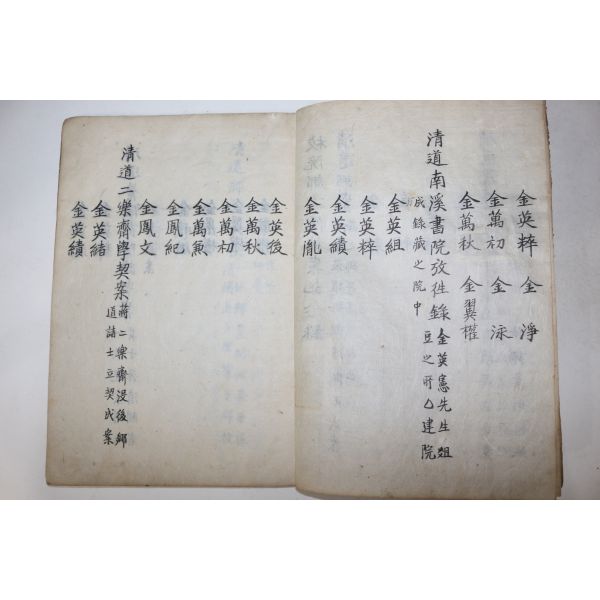 金英粹 金淨
金萬初 金泳
金萬秋 金翼權
清道南溪書院放徃錄 金英憲先生俎
豆之所乙建院
成錄藏之院中
金英組
金英粹
金英績
金英胤
金英後
金萬秋
金萬初
金萬兼
金鳳紀
金鳳文
清道二樂齋學契案 蔣二樂齋浸後鄉
道諸士立契成案
金英結
金英績